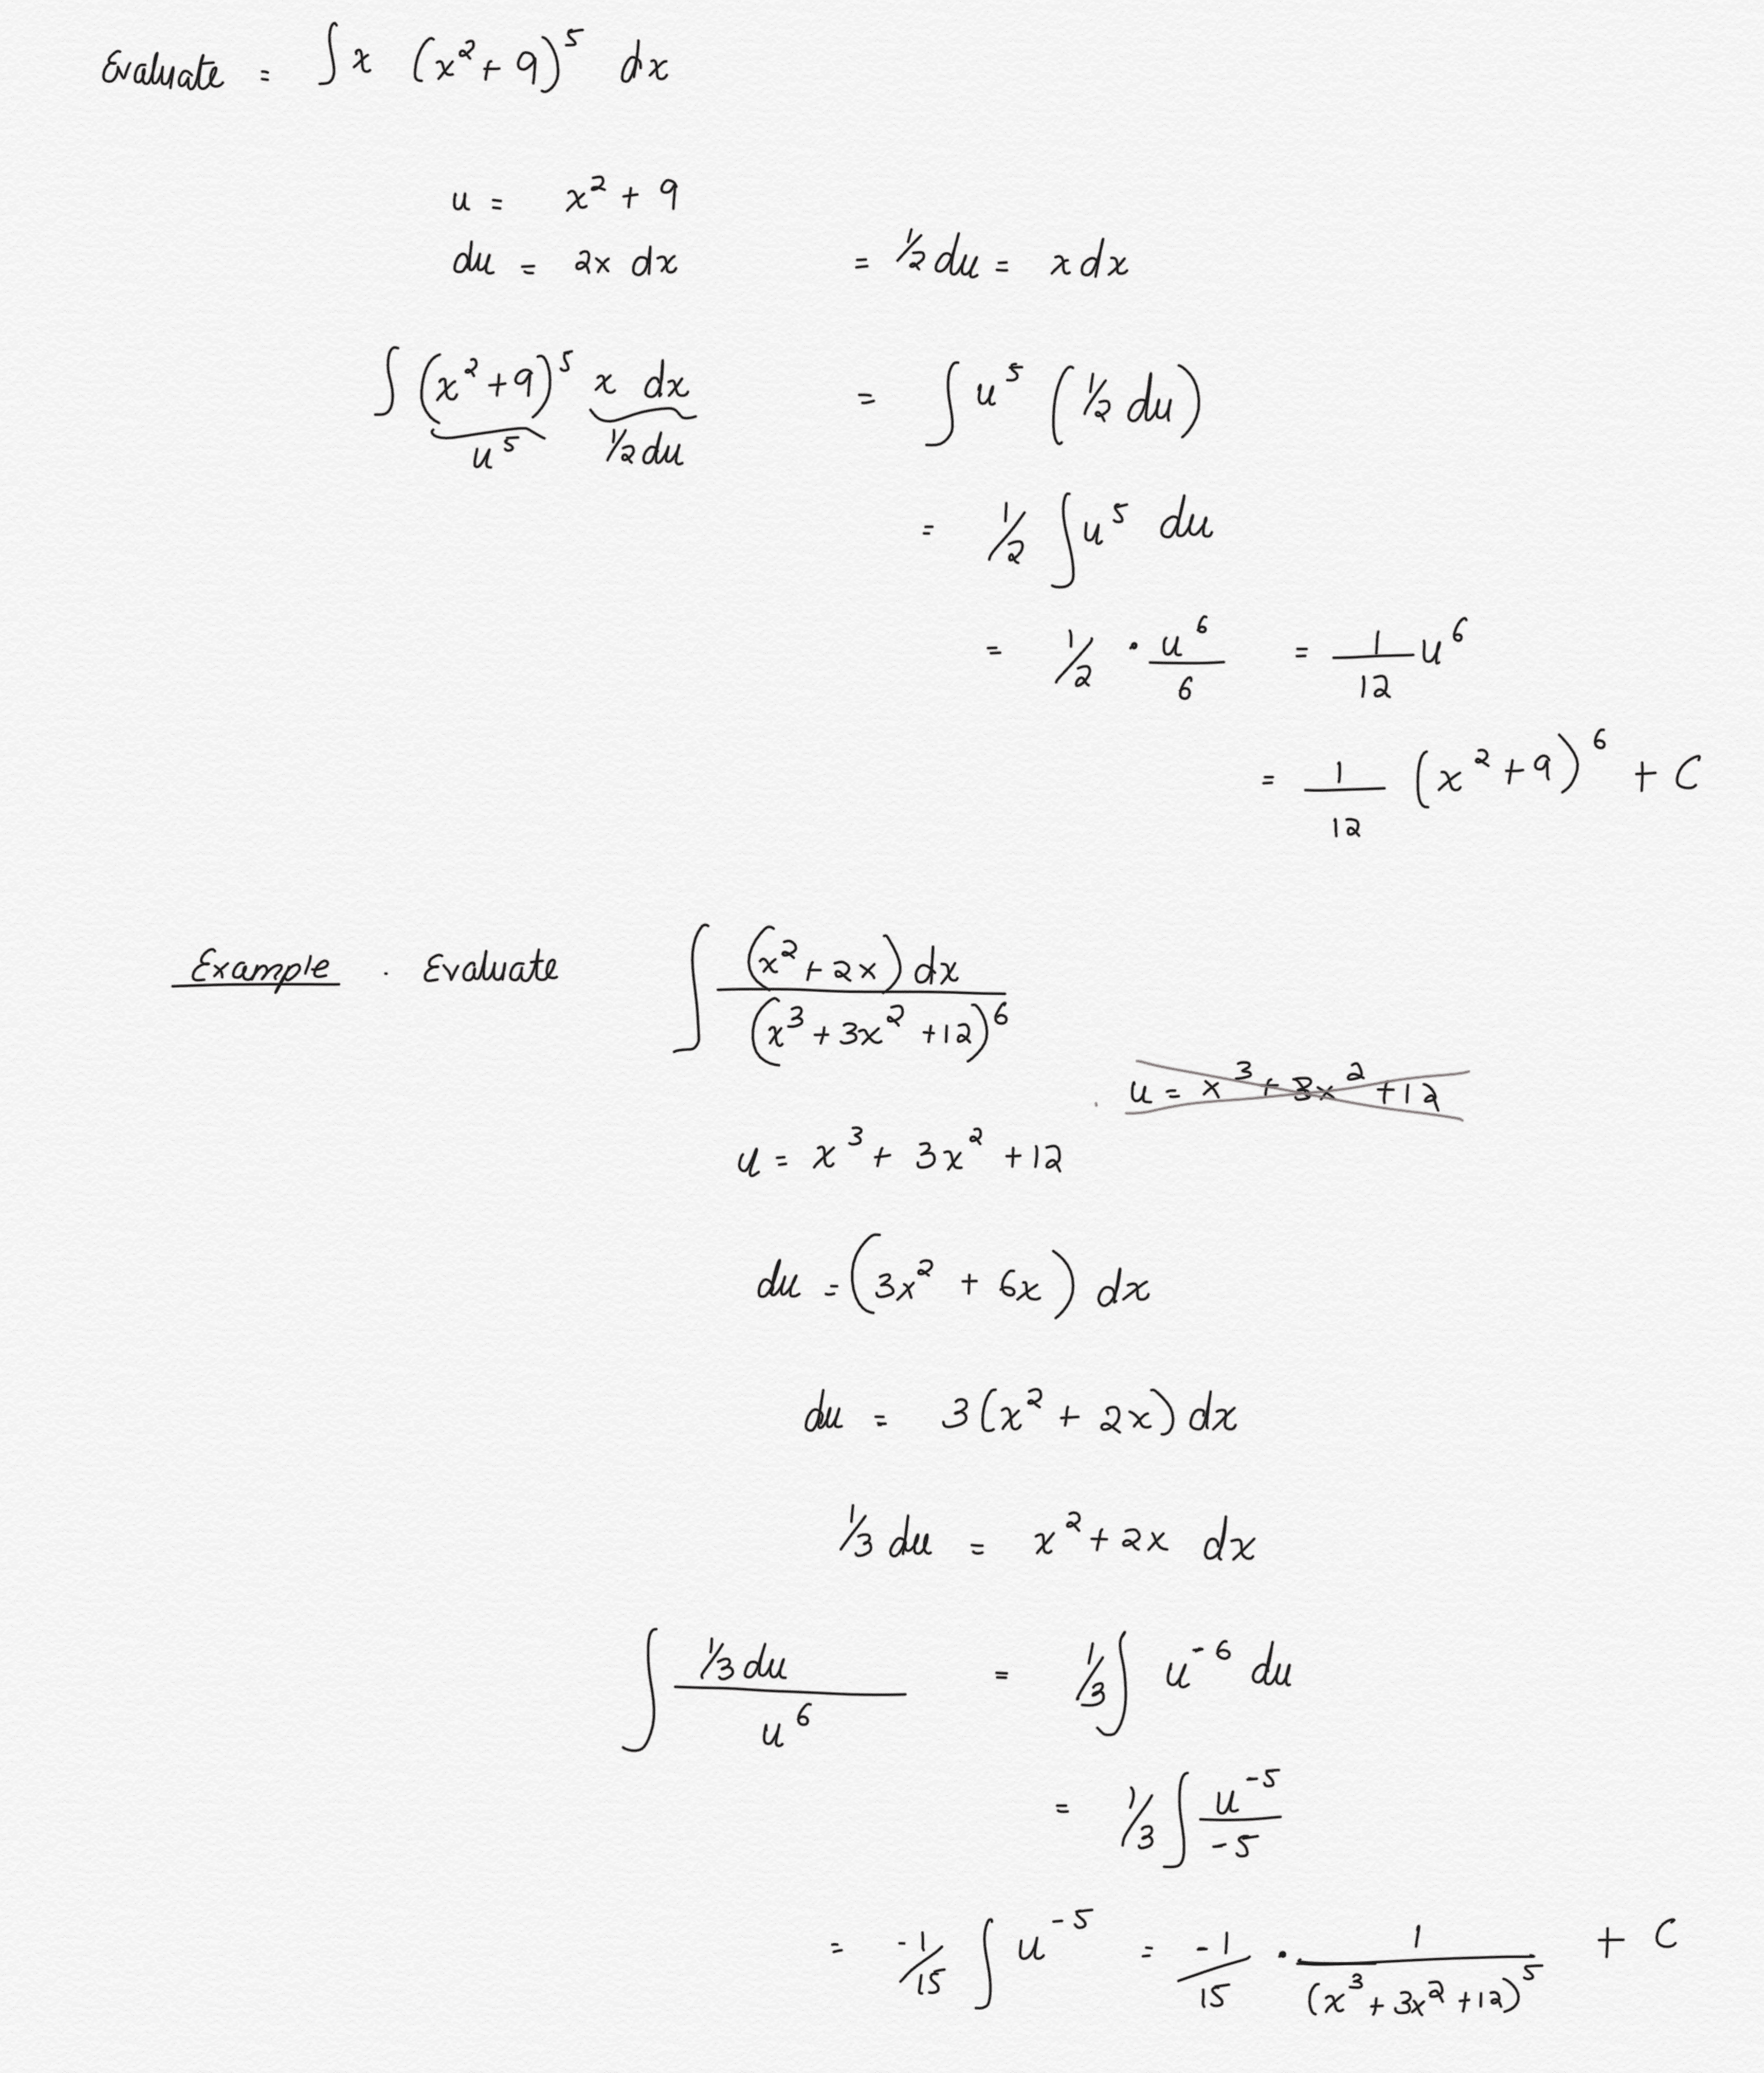 Evaluate = ∫ x (x² + 9)⁵ dx
u = x² + 9
du = 2x dx = ½ du = x dx
∫ (x² + 9)⁵ x dx = ∫ u⁵ (½ du)
u⁵ ½ du
= ½ ∫ u⁵ du
= ½ · u⁶/6 = 1/12 u⁶
= 1/12 (x² + 9)⁶ + C
Example . Evaluate ∫ (x² + 2x) dx / (x³ + 3x² + 12)⁶
. u = x³ + 3x² + 12
u = x³ + 3x² + 12
du = (3x² + 6x) dx
du = 3(x² + 2x) dx
⅓ du = x² + 2x dx
∫ ⅓ du / u⁶ = ⅓ ∫ u⁻⁶ du
= ⅓ ∫ u⁻⁵ / -5
= -1/15 ∫ u⁻⁵ = -1/15 · 1/(x³ + 3x² + 12)⁵ + C